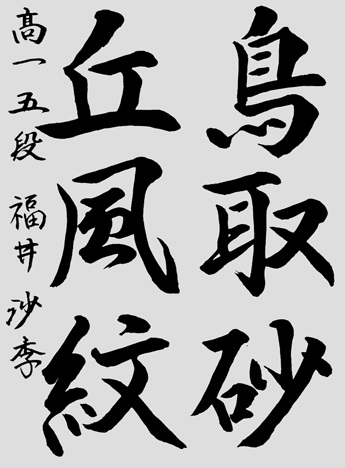 鳥取砂
丘風紋
高一五段 福井沙季